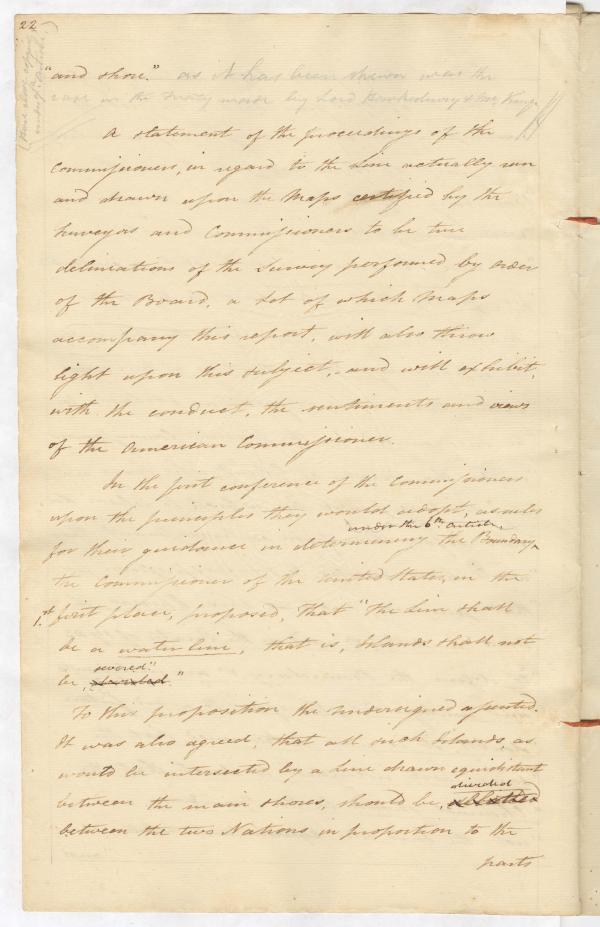 22
"and shore." as it has been shewn was the
case in the Treaty made by Lord Hawkesbury & Mr King
A statement of the proceedings of the
Commissioners, in regard to the Line actually run
and drawn upon the Maps certified by the
Surveyors and Commissioners to be true
delineations of the Survey performed by order
of the Board, a Set of which Maps
accompany this report, will also throw
light upon this subject, and will exhibit,
with the conduct, the sentiments and views
of the American Commissioner.
In the first conference of the Commissioners
upon the principles they would adopt, as rules
under the 6th Article,
for their guidance in determining the Boundary
the Commissioner of the United States, in the
1st first place, proposed, that "the Line shall
be a water line, that is, Islands shall not
severed"
be "
To this proposition the undersigned assented.
It was also agreed, that all such Islands, as
would be intersected by a Line drawn equidistant
divided
between the main shores, should be
between the two Nations in proportion to the
parts